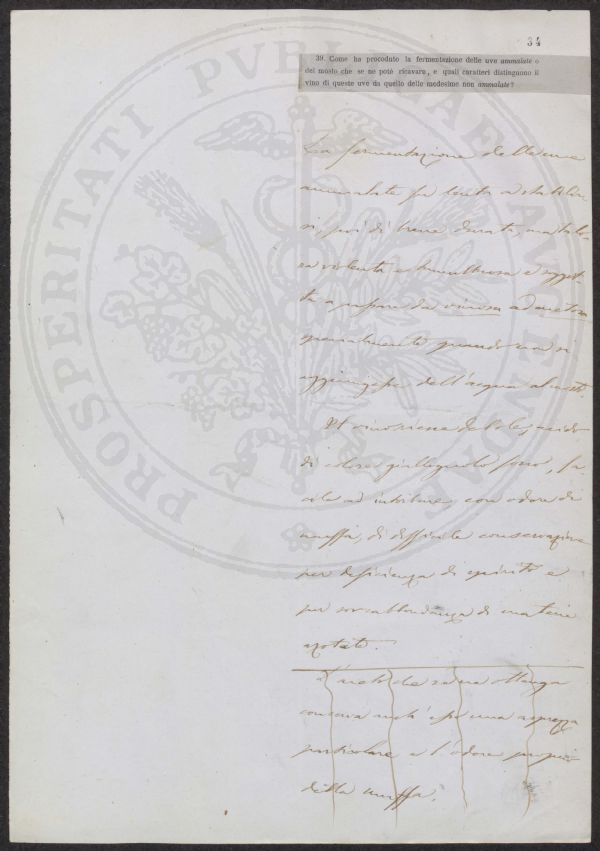 34
39. Come ha proceduto la fermentazione delle uve ammalate o
del mosto che se ne potè ricavare, e quali caratteri distinguono il
vino di queste uve da quello delle medesime non ammalate?
PROSPERITATI PVBLICAE AVGENDAE
La fermentazione delle uve
ammalate fu lenta a stabilir-
si, poi di breve durata, ma talo-
ra violenta e tumultuosa e sogget-
ta a passare da vinosa ad acetosa
specialmente quando non si
aggiungesse dell'acqua al mosto.
Il vino riesce debole, acido
di colore gialle fosco, fa-
cile ad intorbidire, con odore di
muffa, di difficile conservazione
per deficienza di spirito e
per sovrabbondanza di materie
azotate.
L' che se ne ottenga
conserva anch'esso una asprezza
particolare e l'odore proprio
della muffa.